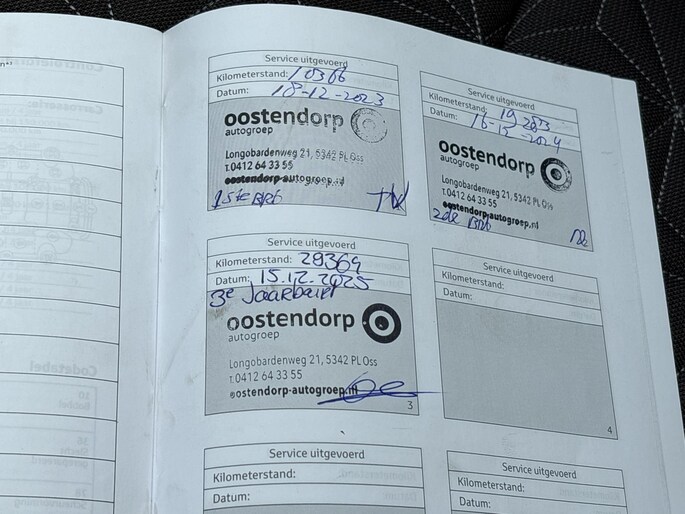 Service uitgevoerd
Kilometerstand: 10366
Datum: 18-12-2023
oostendorp
autogroep
Longobardenweg 21, 5342 PL Oss
t.0412 64 33 55
oostendorp-autogroep.nl
1ste
Service uitgevoerd
Kilometerstand: 19
Datum: 16-12-2024
oostendorp
autogroep
Longobardenweg 21, 5342 PL Oss
t.0412 64 33 55
oostendorp-autogroep.nl
2de
Service uitgevoerd
Kilometerstand: 29369
Datum: 15.12.2025
3e
oostendorp
autogroep
Longobardenweg 21, 5342 PL Oss
t.0412 64 33 55
oostendorp-autogroep.nl
3
Service uitgevoerd
Kilometerstand:
Datum:
4
Service uitgevoerd
Kilometerstand:
Datum:
Service uitgevoerd
Kilometerstand:
Datum: